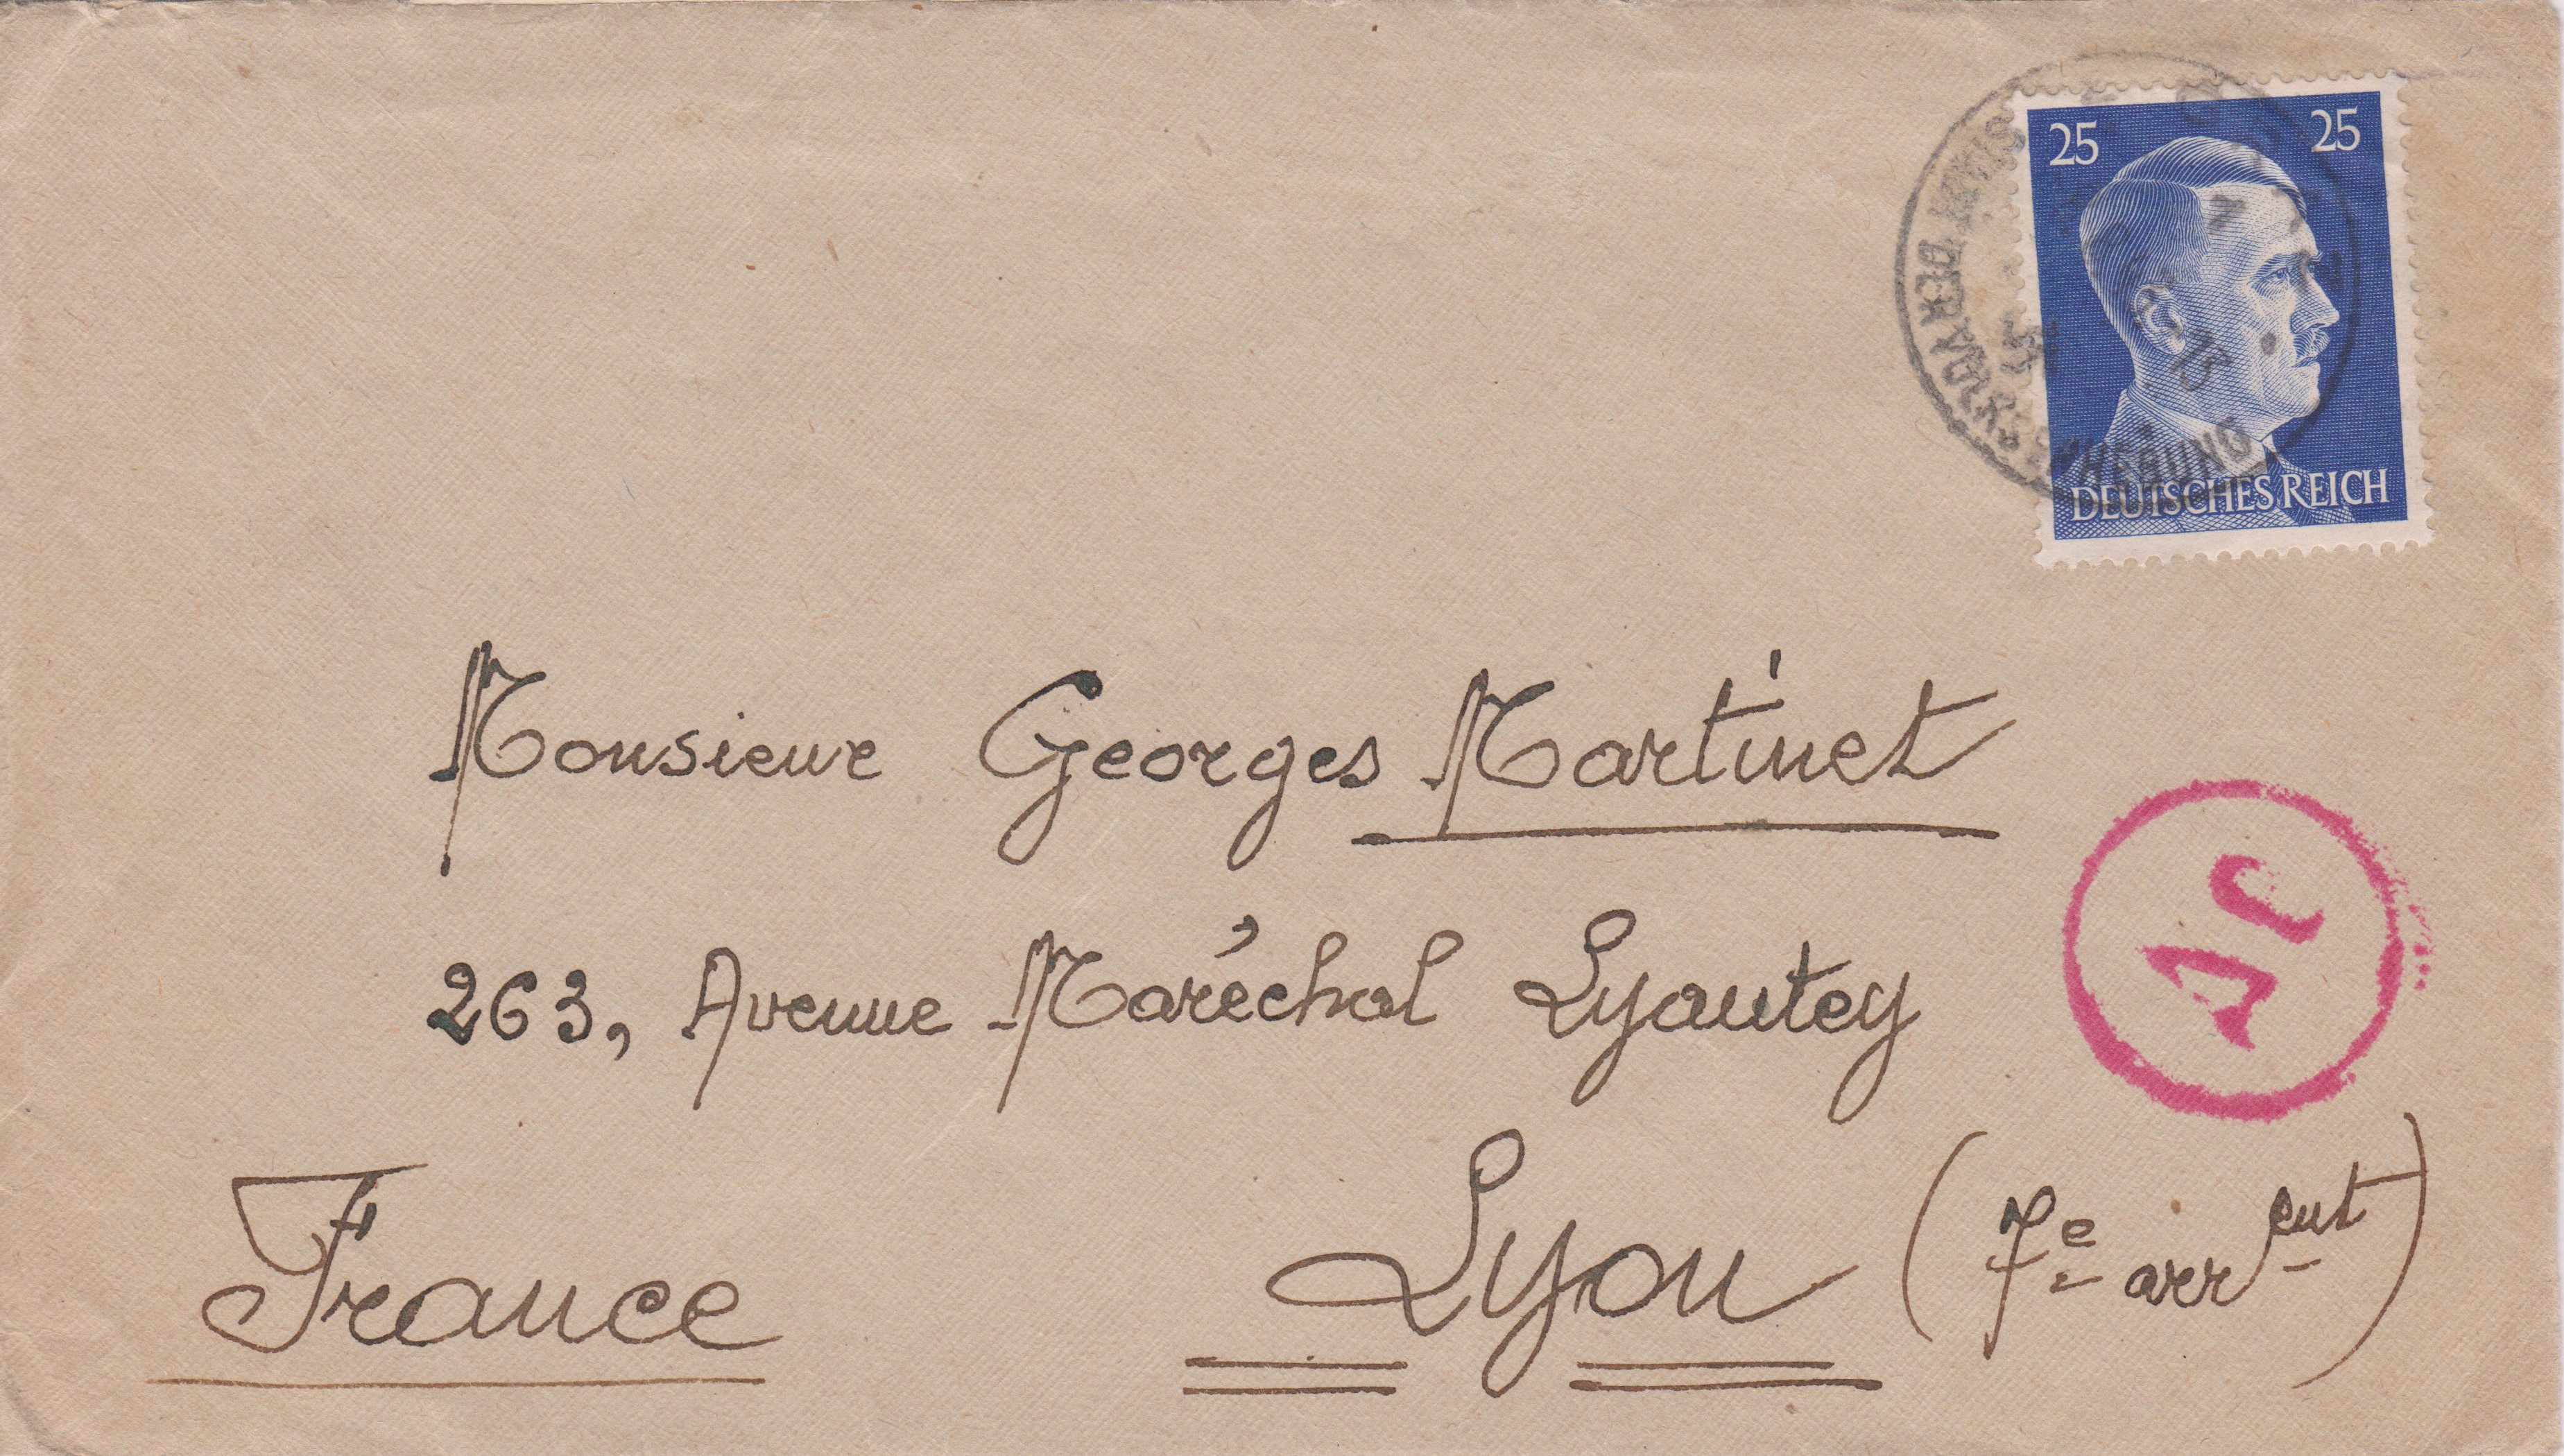 25 25
DEUTSCHES REICH
Monsieur Georges Martinet
263, Avenue Maréchal Lyautey
Lyon (7e arrent)
France